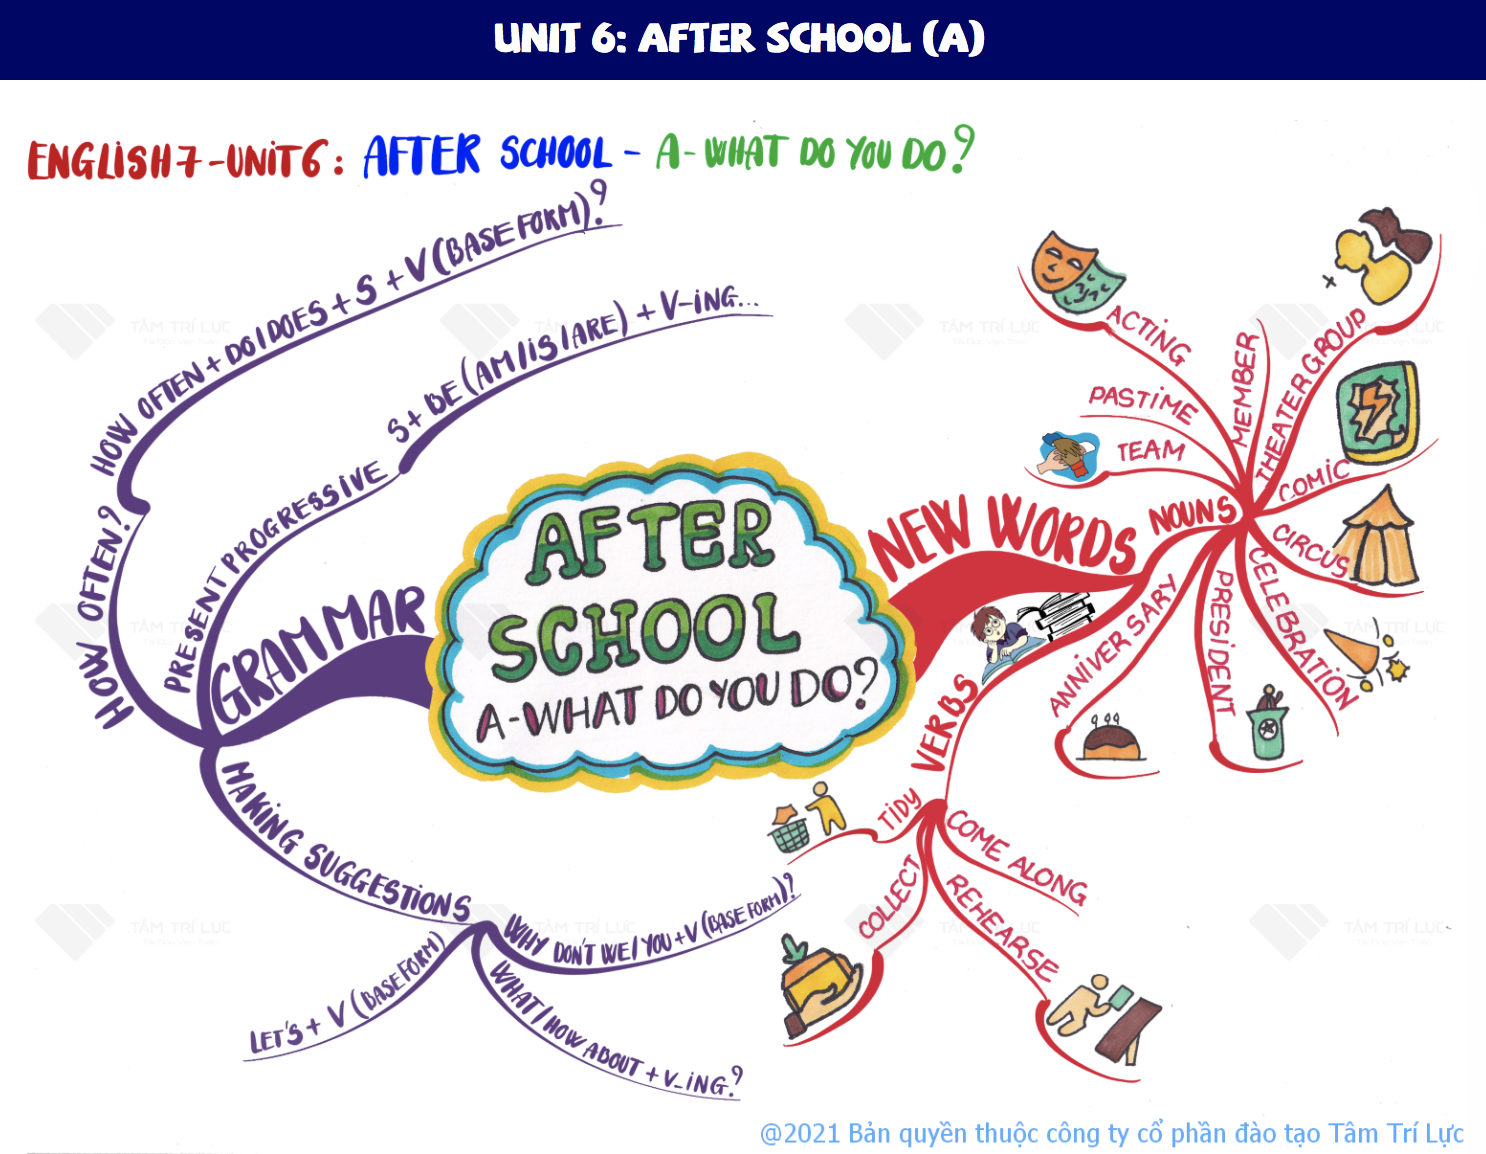 UNIT 6: AFTER SCHOOL (A)
ENGLISH 7 - UNIT 6: AFTER SCHOOL - A - WHAT DO YOU DO?
AFTER
SCHOOL
A - WHAT DO YOU DO?
GRAMMAR
HOW OFTEN?
HOW OFTEN + DO/DOES + S + V (BASE FORM)?
PRESENT PROGRESSIVE
S + BE (AM/IS/ARE) + V-ING...
MAKING SUGGESTIONS
WHY DON'T WE/YOU + V (BASE FORM)?
WHAT/HOW ABOUT + V_ING?
LET'S + V (BASE FORM)
NEW WORDS
NOUNS
ACTING
PASTIME
TEAM
MEMBER
THEATER GROUP
COMIC
CIRCUS
CELEBRATION
PRESIDENT
ANNIVERSARY
VERBS
TIDY
COLLECT
REHEARSE
COME ALONG
TÂM TRÍ LỰC
TÂM TRÍ LỰC
TÂM TRÍ LỰC
TÂM TRÍ LỰC
TÂM TRÍ LỰC
TÂM TRÍ LỰC
@2021 Bản quyền thuộc công ty cổ phần đào tạo Tâm Trí Lực